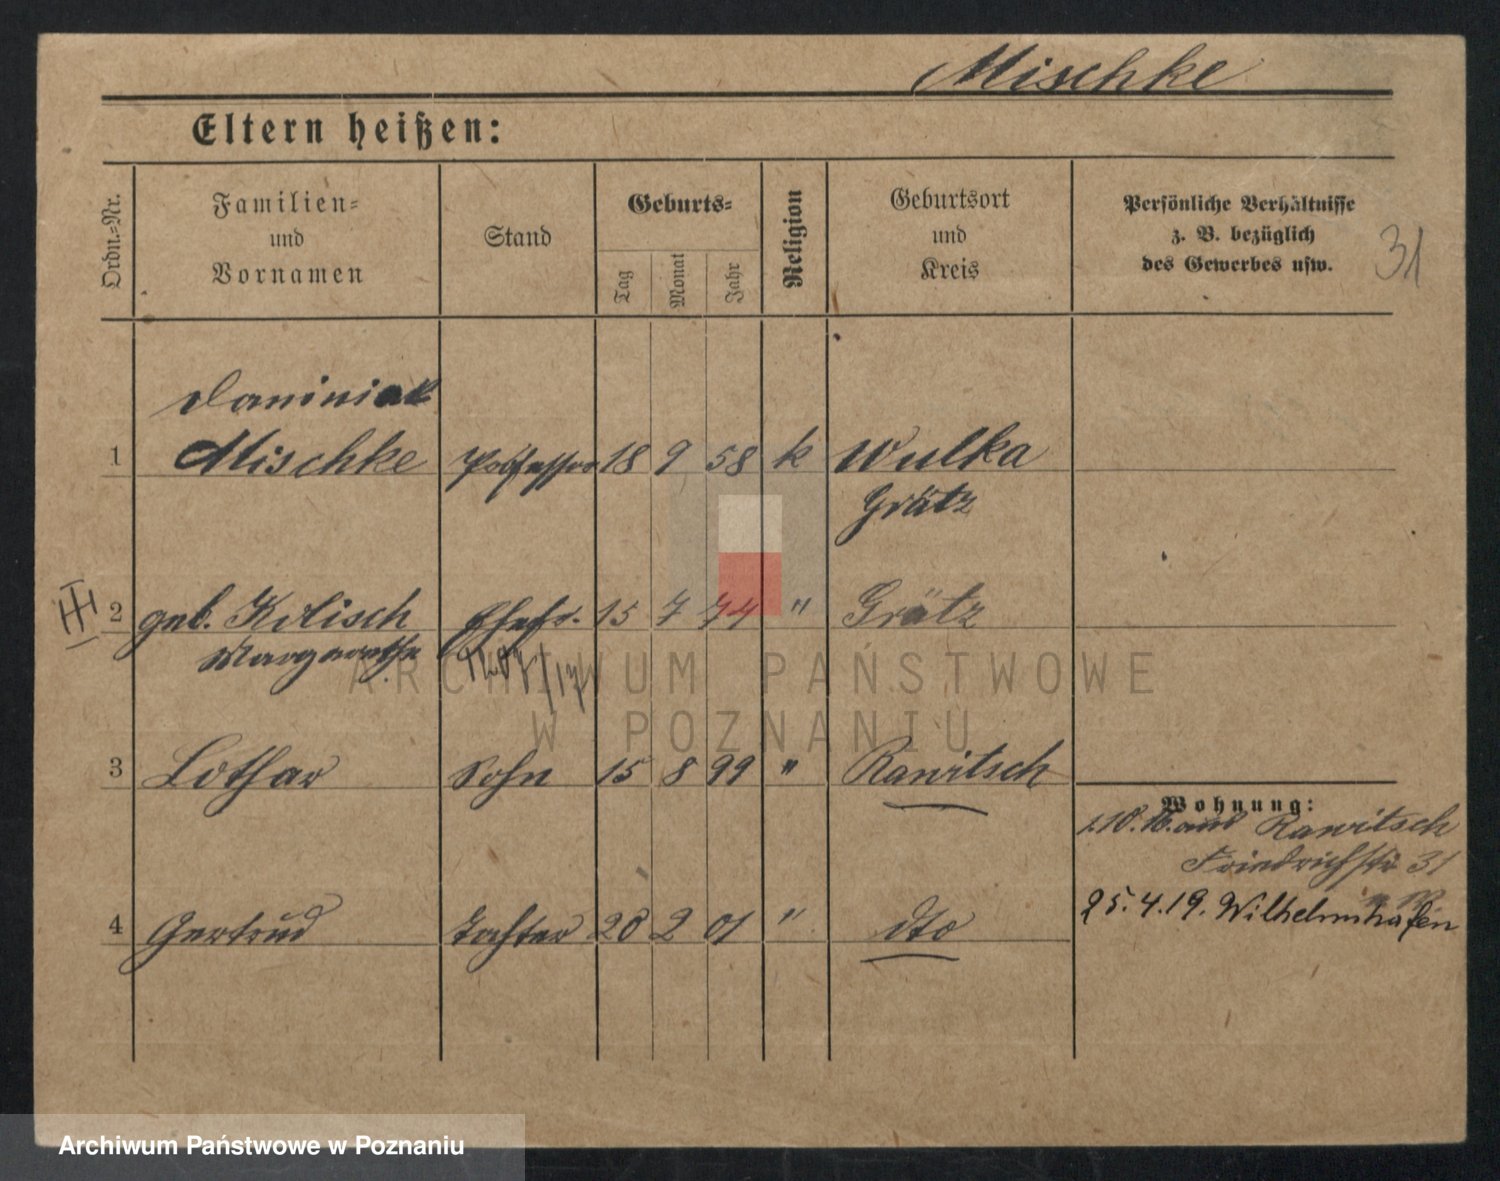 Mischke
Eltern heißen:
Ordn.-Nr.
Familien-
und
Vornamen
Stand
Geburts-
Tag
Monat
Jahr
Religion
Geburtsort
und
Kreis
Persönliche Verhältnisse
z. B. bezüglich
des Gewerbes usw.
31
1
Mischke
Professor
18
9
58
k
Wulka
Grätz
2
geb. Kolisch
Margarethe
Ehefr.
15
7
74
"
Grätz
3
Lothar
Sohn
15
8
99
"
Rawitsch
4
Gertrud
Tochter
28
2
01
"
dto
Wohnung:
Rawitsch
Friedrichstr 31
25.4.19. Wilhelmshafen
ARCHIWUM PAŃSTWOWE
W POZNANIU
Archiwum Państwowe w Poznaniu